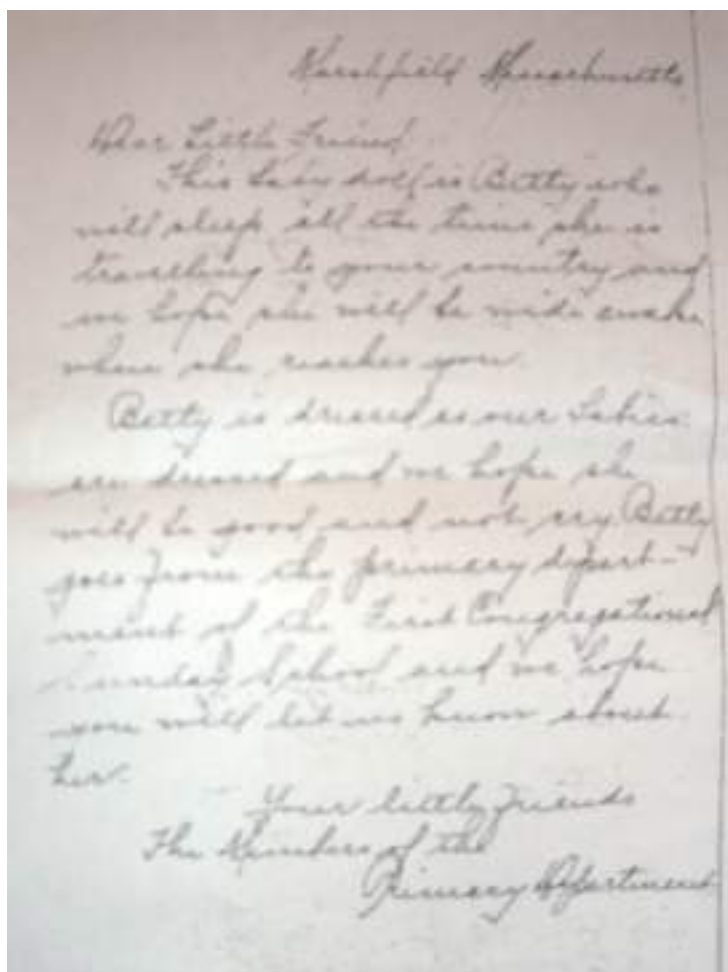 Marshfield Massachusetts
Dear Little Friend
This baby doll is Betty who
will sleep all the time she is
travelling to your country and
we hope she will be wide awake
when she reaches you.
Betty is dressed as our babies
are dressed and we hope she
will be good and not cry Betty
goes from the primary depart-
ment of the First Congregational
Sunday School and we hope
you will let us know about
her.
Your little friends
The Members of the
Primary Department